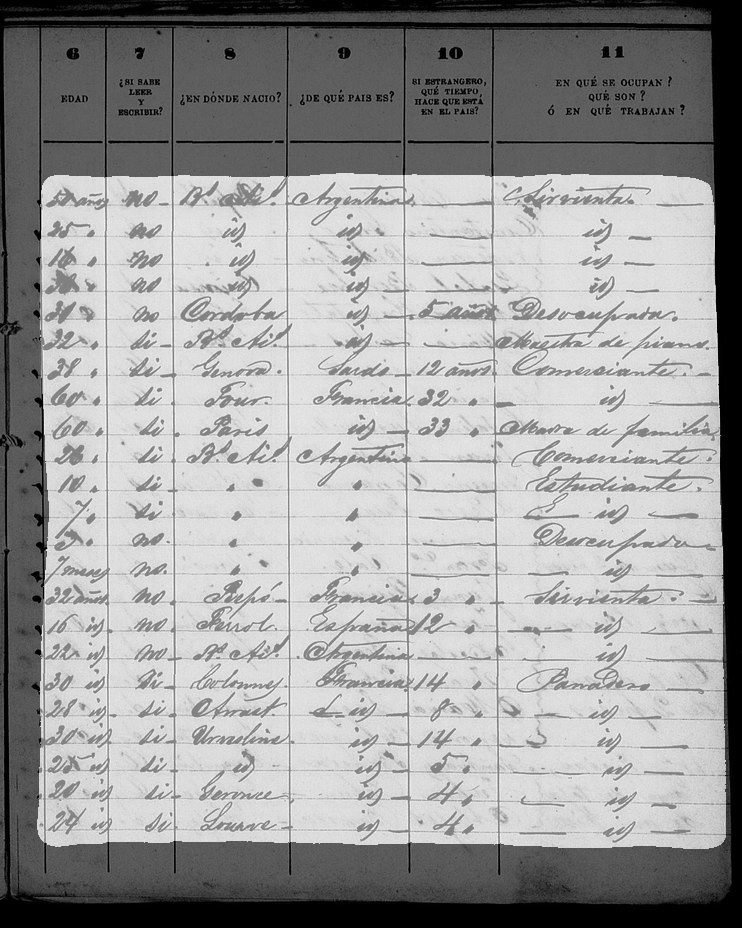 6 7 8 9 10 11
EDAD ¿SI SABE LEER Y ESCRIBIR? ¿EN DÓNDE NACIO? ¿DE QUÉ PAIS ES? SI ESTRANGERO, QUÉ TIEMPO HACE QUE ESTÁ EN EL PAIS? EN QUÉ SE OCUPAN? QUÉ SON? Ó EN QUÉ TRABAJAN?
años no Bs Ais Argentina Sirvienta
25 " no id id id
16 " no id id id
no id id id
" no Cordoba id 5 años Desocupada.
32 " si Bs Ais id Maestra de piano.
38 " si Genova. Sardo 12 años Comerciante.
60 " si Francia 32 " id
60 " si Paris id 33 " Madre de familia
26 " si Bs Ais Argentina Comerciante.
10 " si " " Estudiante.
7 " si " " id
" no. " " Desocupado
7 meses no. " " id
32 años. no. Francia 3 " Sirvienta.
16 id no. Ferrol España 12 " id
22 id no Bs Ais Argentina id
30 id si Francia 14 " Panadero
28 id si id 8 " id
30 id si id 14 " id
25 id si id id 5 " id
20 id si id 4 " id
24 id si id 4 " id